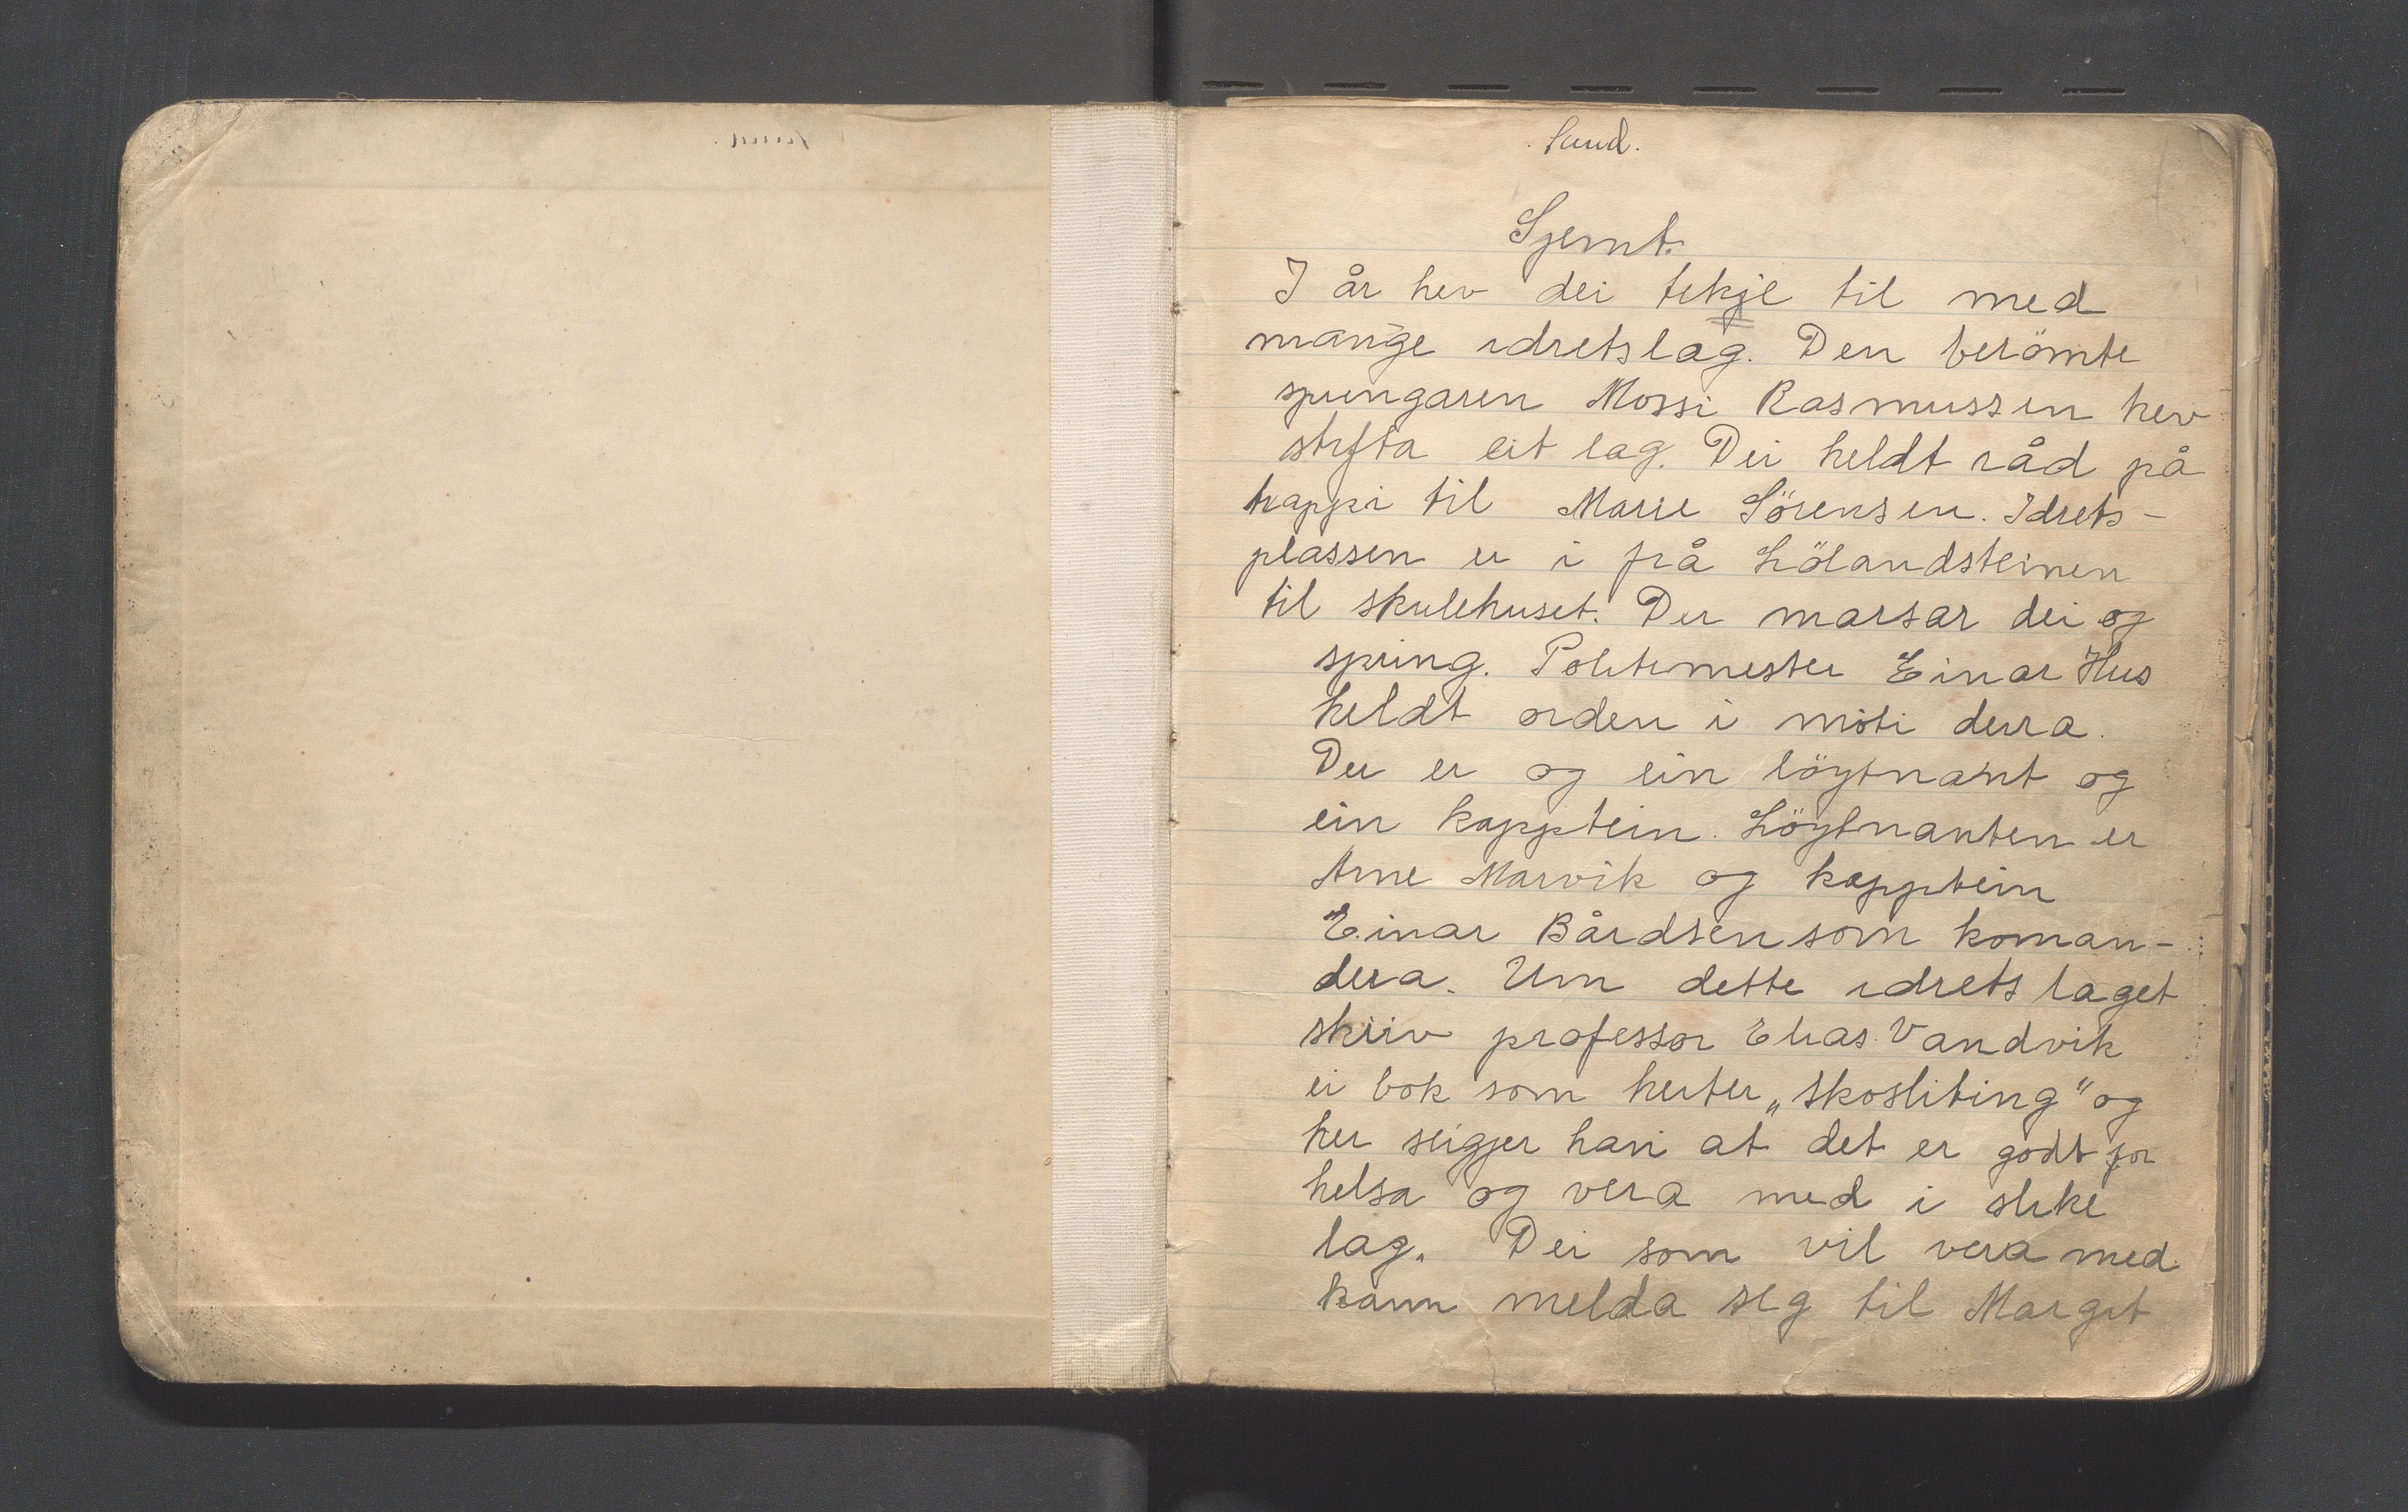 Sund.
Sjemt.
I år hev dei tekje til med
mange idretslag. Den berömte
springaren Mossi Rasmussen hev
stifta eit lag. Dei heldt råd på
trappi til Marie Sörensen. Idrets-
plassen er i frå Lölandsteinen
til skulehuset. Der marsar dei og
spring. Politimester Einar Hus
heldt orden i möti derra.
Der er og ein löytnant og
ein kapptein. Löytnanten er
Arne Marvik og kapptein
Einar Bårdsen som koman-
dera. Um dette idretslaget
skriv professor Elias Vandvik
ei bok som heiter „Skosliting" og
her seigjer han at det er godt for
helsa og vera med i slike
lag. Dei som vil vera med
kann melda seg til Margit